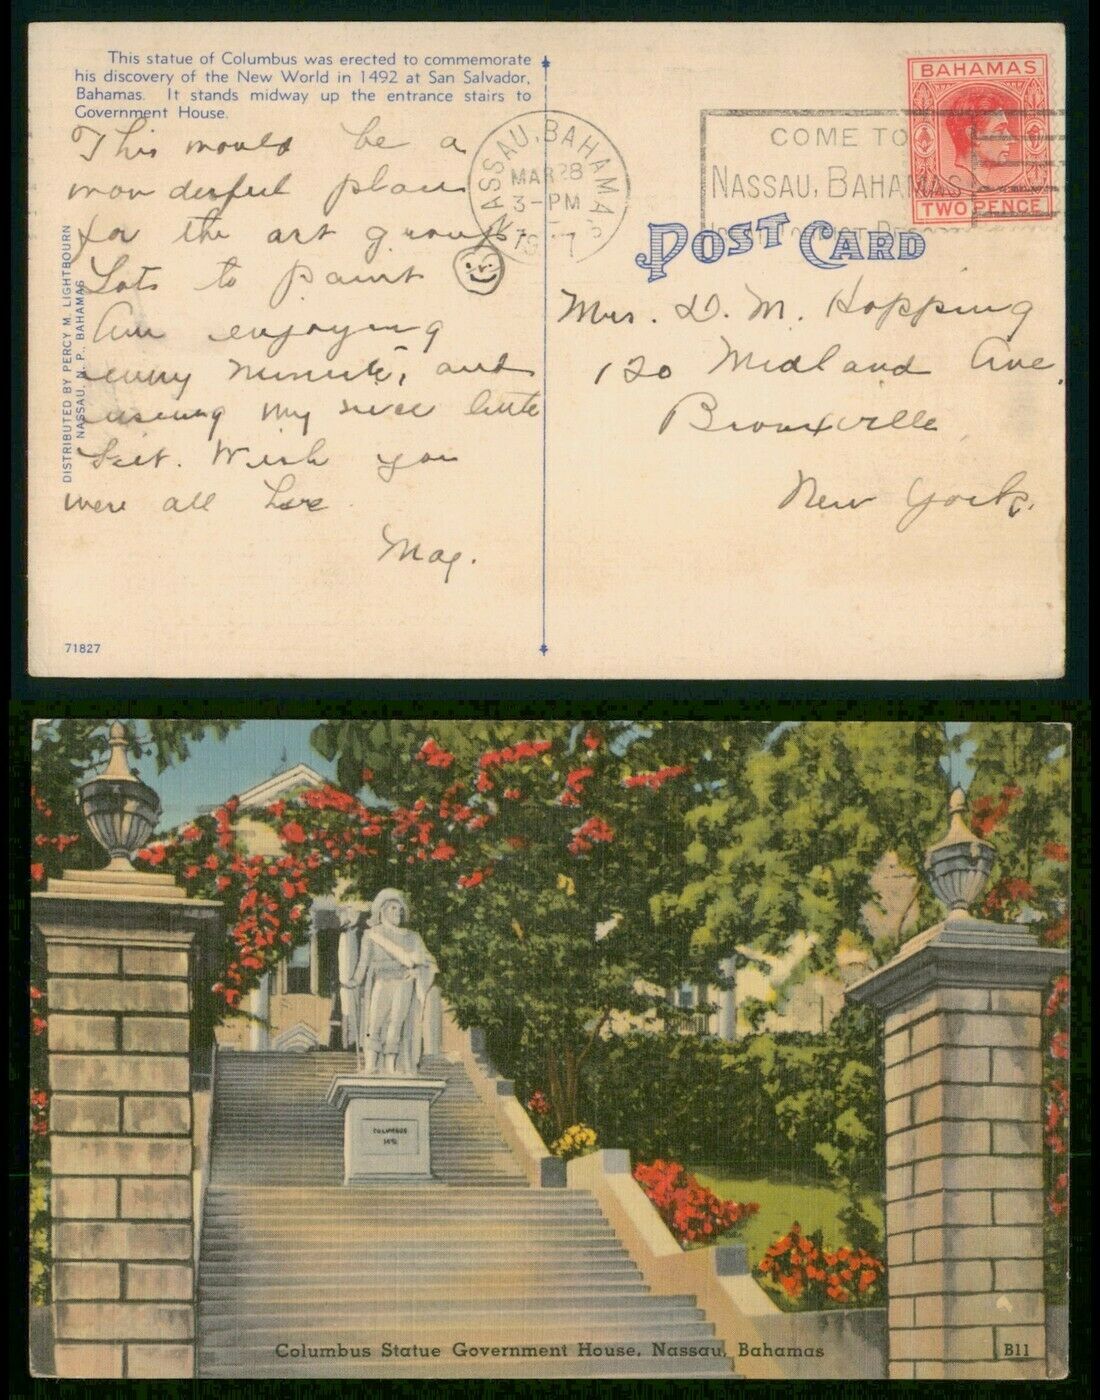 This statue of Columbus was erected to commemorate
his discovery of the New World in 1492 at San Salvador,
Bahamas. It stands midway up the entrance stairs to
Government House.
This would be a
wonderful place
for the art group.
Lots to paint
Am enjoying
every minute, and
using my nice little
. Wish you
were all here
Mag.
DISTRIBUTED BY PERCY M. LIGHTBOURN
NASSAU, N. P., BAHAMAS
71827
NASSAU, BAHAMAS
MAR 28
3-PM
COME TO
NASSAU, BAHAMAS
BAHAMAS
TWO PENCE
POST CARD
Mrs. D. M. Hopping
120 Midland Ave.
Bronxville
New York.
COLUMBUS
1492
Columbus Statue Government House, Nassau, Bahamas
B11